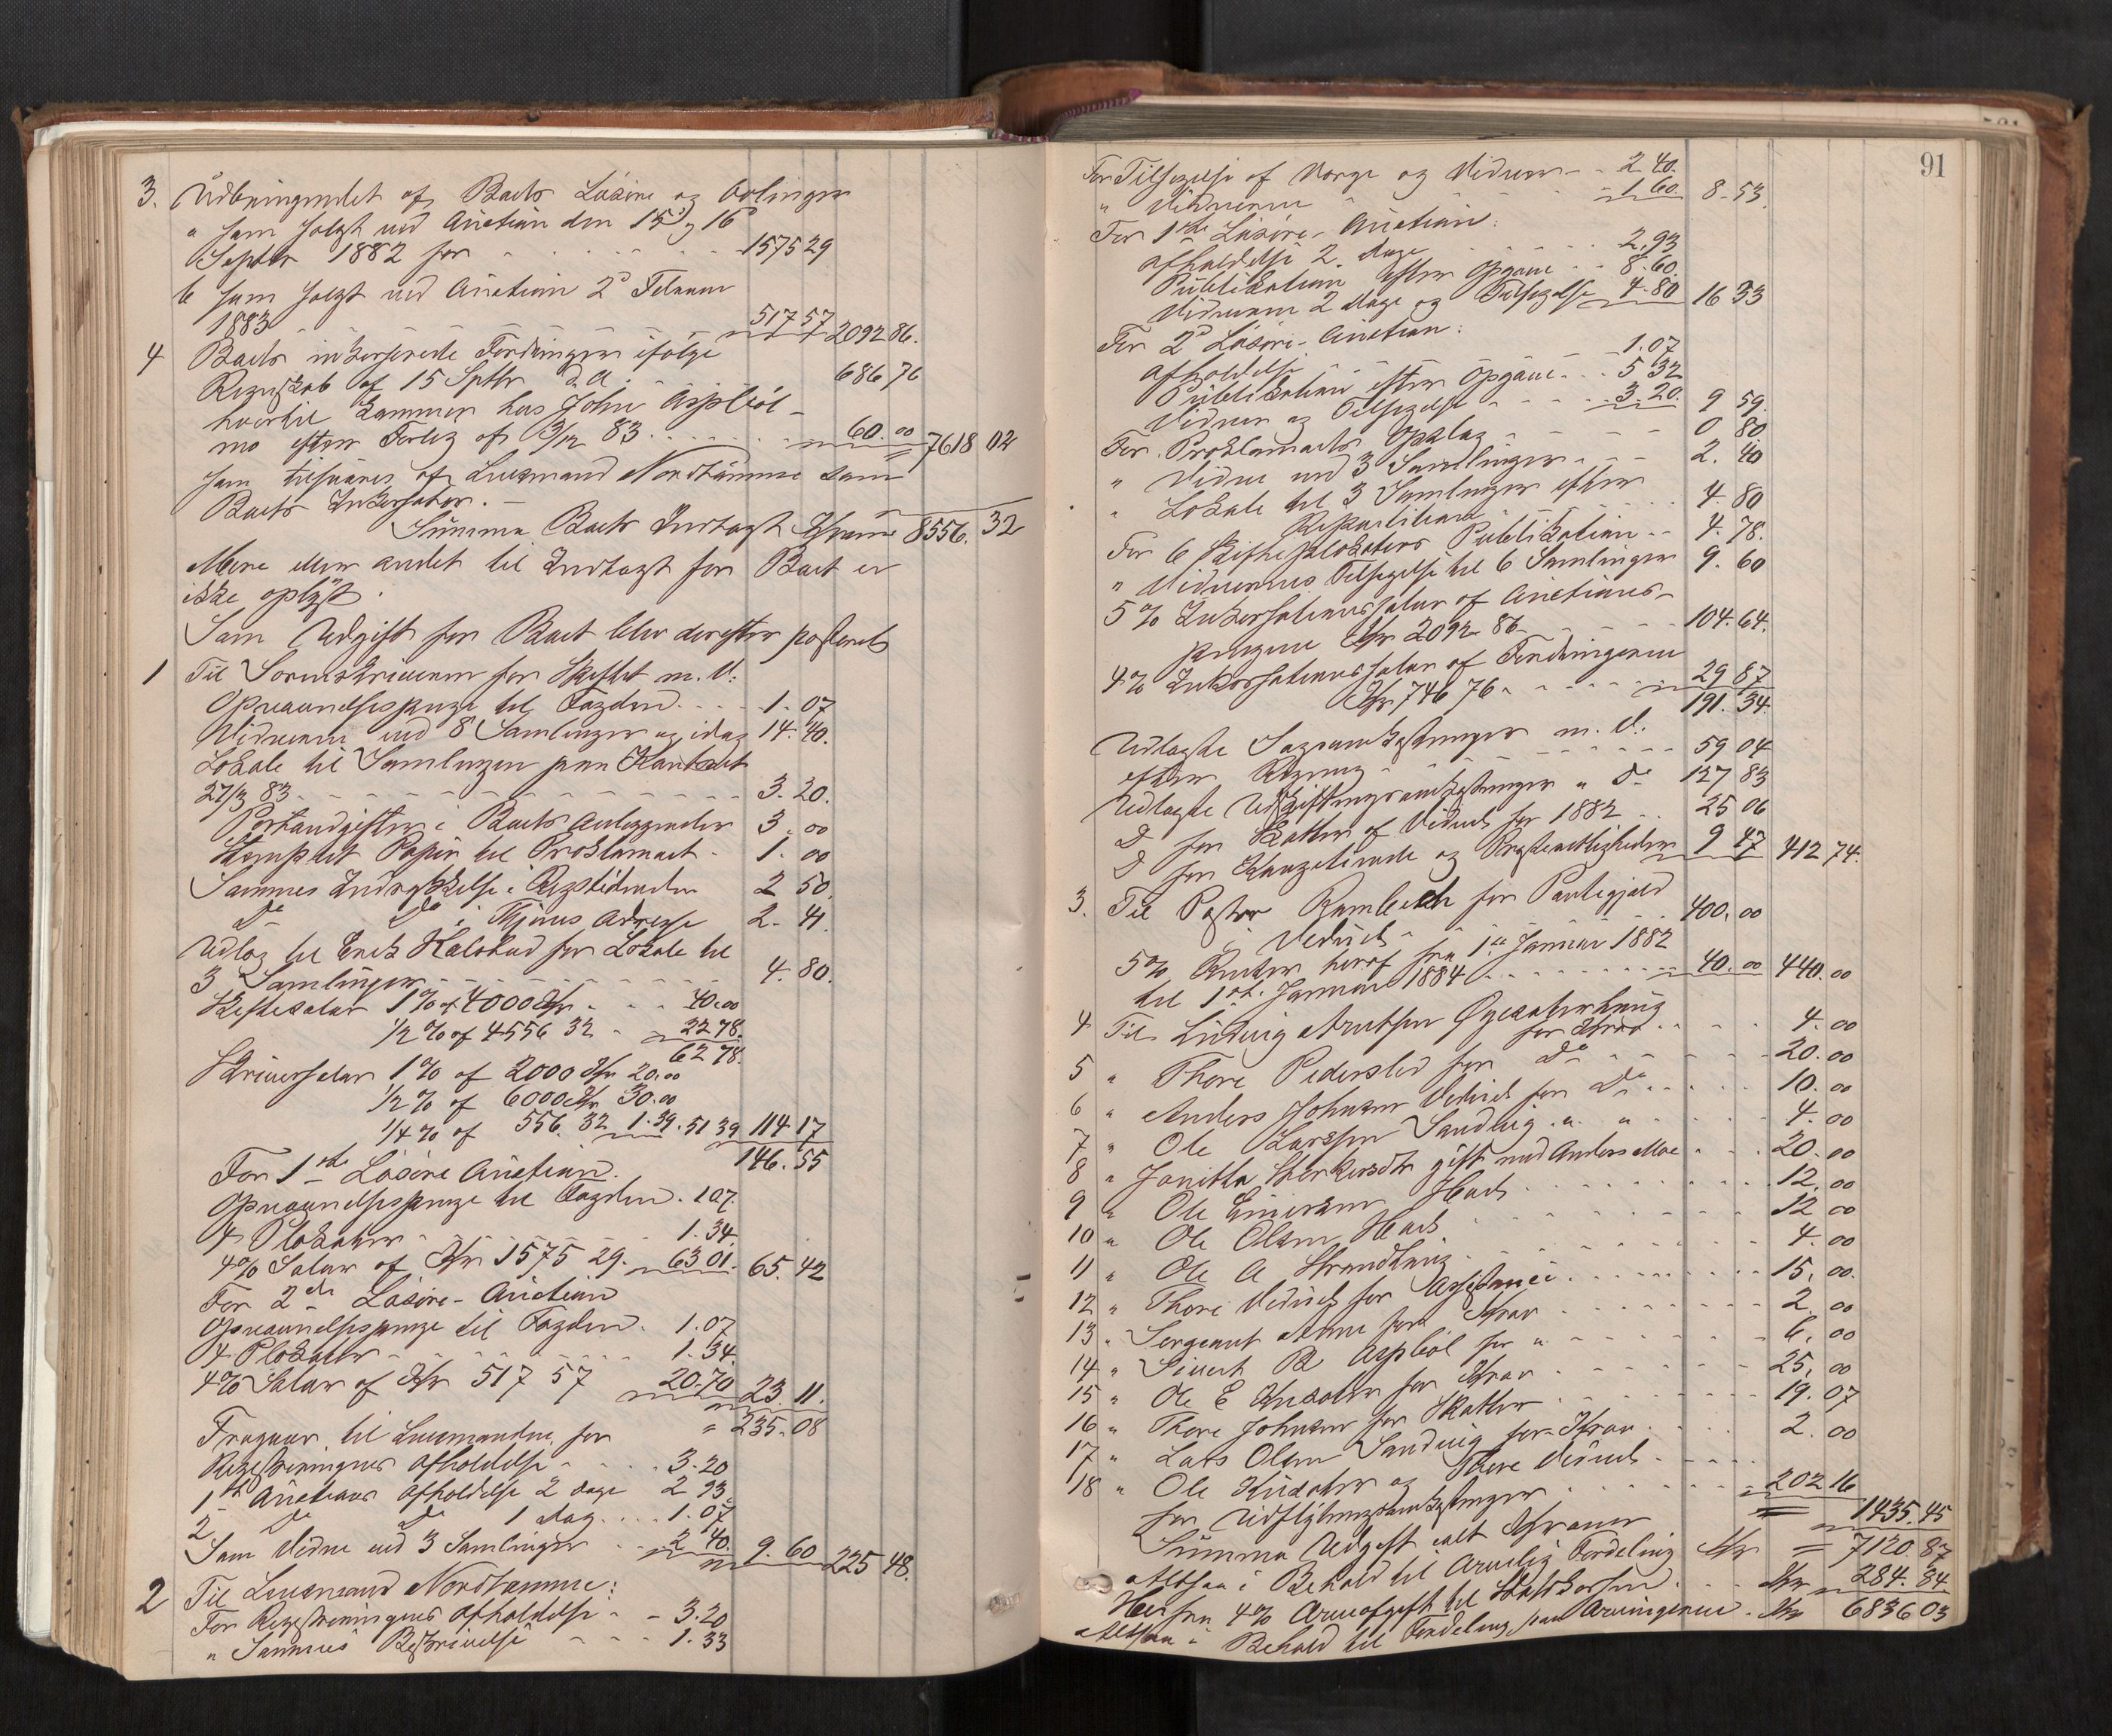 3. Udbringendet af Boets Løsøre og Avlingen
a som solgt ved Auction den 15de og 16de
Septbr 1882 for - - - 1575 29
b som solgt ved Auction 2den Februar
1883 - - - 517 57 2092 86.
4 Boets inkasserede Fordringer ifølge
Regnskab af 15 Septbr d. A. 686 76
hvortil kommer hos John Aspbøl-
mo efter Forlig af 3/12 83 - - - 60.00 7618 02
som tilsvares af Lensmand Nordtømme som
Boets Inkassator. -
Summa Boets Indtægt Kroner 8556. 32
Mere eller andet til Indtægt for Boet er
ikke oplyst.
Som Udgift for Boet blev derefter posteret
1 Til Sorenskriveren for Skiftet m. V:
Opnævnelsespenge til Fogden - - - 1.07
Vidnerne ved 8 Samlinger og idag 14.40.
Lokale til Samlingen paa Kontoret
27/3 83 - - - 3.20.
Portoudgifter i Boets Anliggender 3.00
Stemplet Papir til Proklamaet - 1.00
Sammes Indrykkelse i Rigstidenden 2 50
Do Do i Thjems Adresse 2.41.
Udlæg til Erik Kalstad for Lokale til
3 Samlinger - - - 4.80.
Skiftesalær 1% af 4000 Kr. - - 40.00
1/2 % af 4556 32 - 22 78.
62 78.
Skriversalær 1% af 2000 Kr 20.00
1/2 % af 6000 Kr 30.00
1/4 % af 556. 32 1.39. 51 39 114 17
146.55
For 1ste Løsøre Auction.
Opnævnelsespenge til Fogden. 1.07.
4 Plakater - - - 1.34.
4% Salær af Kr 1575 29. 63 01. 65.42
For 2den Løsøre-Auction
Opnævnelsespenge til Fogden. 1.07
4 Plakater - - - 1.34.
4% Salær af Kr 517 57 20.70 23.11.
235.08
Fragaar til Lensmanden for
Registreringens Afholdelse - - - 3.20
1ste Auctions Afholdelse 2 dage 2 93.
2 Do Do 1 dag. - - 1.07
Som Vidne ved 3 Samlinger - - 2 40. 9.60 225 48.
2 Til Lensmand Nordtømme:
For Registreringens Afholdelse - - 3.20
" Sammes Beskrivelse - - - 1.33
91
For Tilsigelse af Værge og Vidner - - 2 40.
" Vidnerne - - - 1 60. 8.53.
For 1ste Løsøre-Auction:
Afholdelse 2 dage - - - 2,93
Publikation efter Opgave - - 8.60.
Vidnerne 2 dage og Tilsigelse 4.80 16 33
For 2den Løsøre-Auction:
Afholdelse - - - 1.07
Publikation efter Opgave - - 5 32
Vidner og Tilsigelse - - - 3.20. 9 59.
For Proklamaets Opslag - - - 0 80
" Vidne ved 3 Samlinger - - - 2. 40
" Lokale til 3 Samlinger efter
Repartition - - - 4. 80
For 6 Skifteplakaters Publikation - - 4.78.
" Vidnernes Tilsigelse til 6 Samlinger 9.60
5% Inkassationssalær af Auctions-
pengene Kr 2092 86 - - - 104.64.
4% Inkassationssalær af Fordringerne
Kr 746 76 - - - 29 87
191.34.
Udlagte Sagsomkostninger m. V.
efter Regning - - - 59 04
Udlagte Udskiftningsomkostninger " Do 127 83
Do for Skatter af Vedird for 1882 - - 25 06
Do for Kongetiende og Prestrettigheder 9 47 412 74.
3. Til Pastor Rambech for Pantegjæld
i Vedird - - - 400.00
5% Renter heraf fra 1ste Januar 1882
til 1ste Januar 1884 - - - 40.00 440.00
4 Til Ludvig Arntsen
for Krav - - - 4.00
5 " Thore Pedersled for Do - - - 20.00
6 " Anders Johnsen Vedird for Do - - - 10.00
7 " Ole Larssen Sandvig " " - - - 4.00
8 " gift med Anders Moe - - - 20.00
9 " Ole Hoels - - - 12,00
10 " Ole Olsen Hoels - - - 12 00
11 " Ole A Strandhaug - - - 4.00
12 " Thore Vedird for Assistance - - - 15,00.
13 " Sergeant for Krav - - - 2.00
14 " Sivert R Aspbøl for " - - - 6.00
15 " Ole E for Krav - - - 25,00
16 " Thore Johnsen for Skatter - - - 19.07
17 " Lars Olsen Sandvig for Krav - - - 2.00
18 " Ole og Thore Vedird -
for Udflytningsomkostninger - - - 202 16
1435.45
Summa Udgift ialt Kroner
Altsaa i Behold til Arvelig Fordeling Kr = 7120.87
Herfra 4% Arveafgift til Statskassen - - Kr 284.84
Altsaa i Behold til Fordeling paa Arvingerne - Kr 6836 03